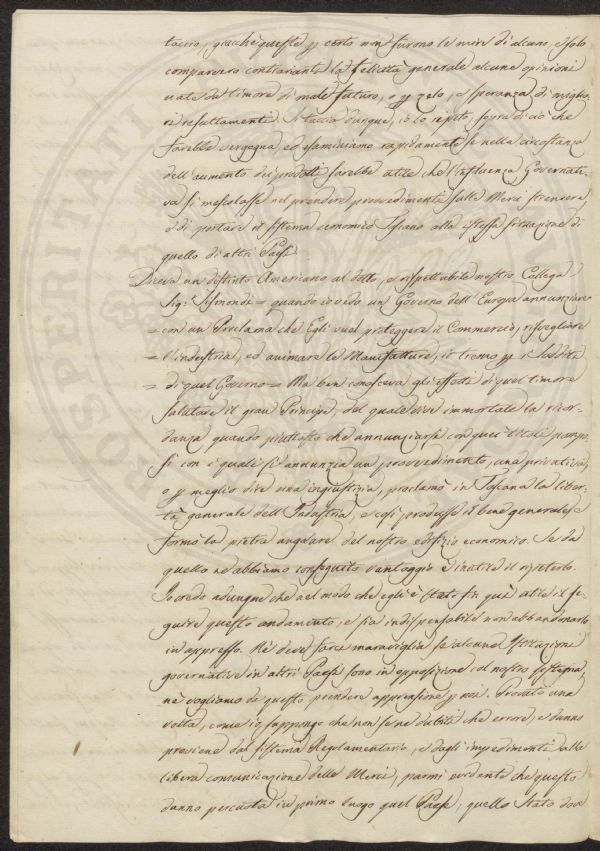 taccio, giacchè queste p certo non furono le mire di alcuno, e solo
comparvero contrarianti la felicità generale alcune opinioni
nate da timore di male futuro, o p zelo, e speranza di miglio-
ri resultamenti. Si taccia dunque, io lo repeto, sopra di ciò che
sarebbe vergogna, ed esaminiamo rapidamente se nella circostanza
dell'aumento dei prodotti sarebbe utile che l'influenza Governati-
va si mescolasse nel prendere provvedimenti sulle Merci straniere
o di portare il sistema economico Toscano alla istessa situazione di
quello di altri Paesi.
Diceva un distinto Americano al dotto, e rispettabile nostro Collega
Sigr. Sismondi = quando io vedo un Governo dell'Europa annunziare
= con un Proclama che Egli vuol proteggere il Commercio, risvegliare
= l'industria, ed animare le Manifatture, io tremo p i Sudditi
= di quel Governo = Ma ben conosceva gli effetti di quel timore
salutare il gran Principe, del quale vive immortale la ricor-
danza quando piuttosto che annunziarsi con quei titoli pompo-
si con i quali si annunzia un provvedimento, una privativa,
o p meglio dire una ingiustizia, proclamò in Toscana la liber-
tà generale dell'Industria, e così produsse il bene generale, e
formò la pietra angolare del nostro edifizio economico. Se da
quello ne abbiamo conseguito vantaggio è inutile il ripeterlo.
Io credo adunque che nel modo che egli è stato fin quì utile il se-
guire questo andamento, e sia indispensabile non abbandonarlo
in appresso. Nè deve farci maraviglia se alcune Istruzioni
governative in altri Paesi sono in opposizione col nostro sistema,
nè vogliamo da questo prendere apprensione p noi. Provato una
volta, come io suppongo che non se ne dubiti che errore, e danno
proviene dal sistema Regolamentario, e dagli impedimenti alla
libera comunicazione delle Merci, parmi evidente che questo
danno percuota in primo luogo quel Paese, quello Stato dove